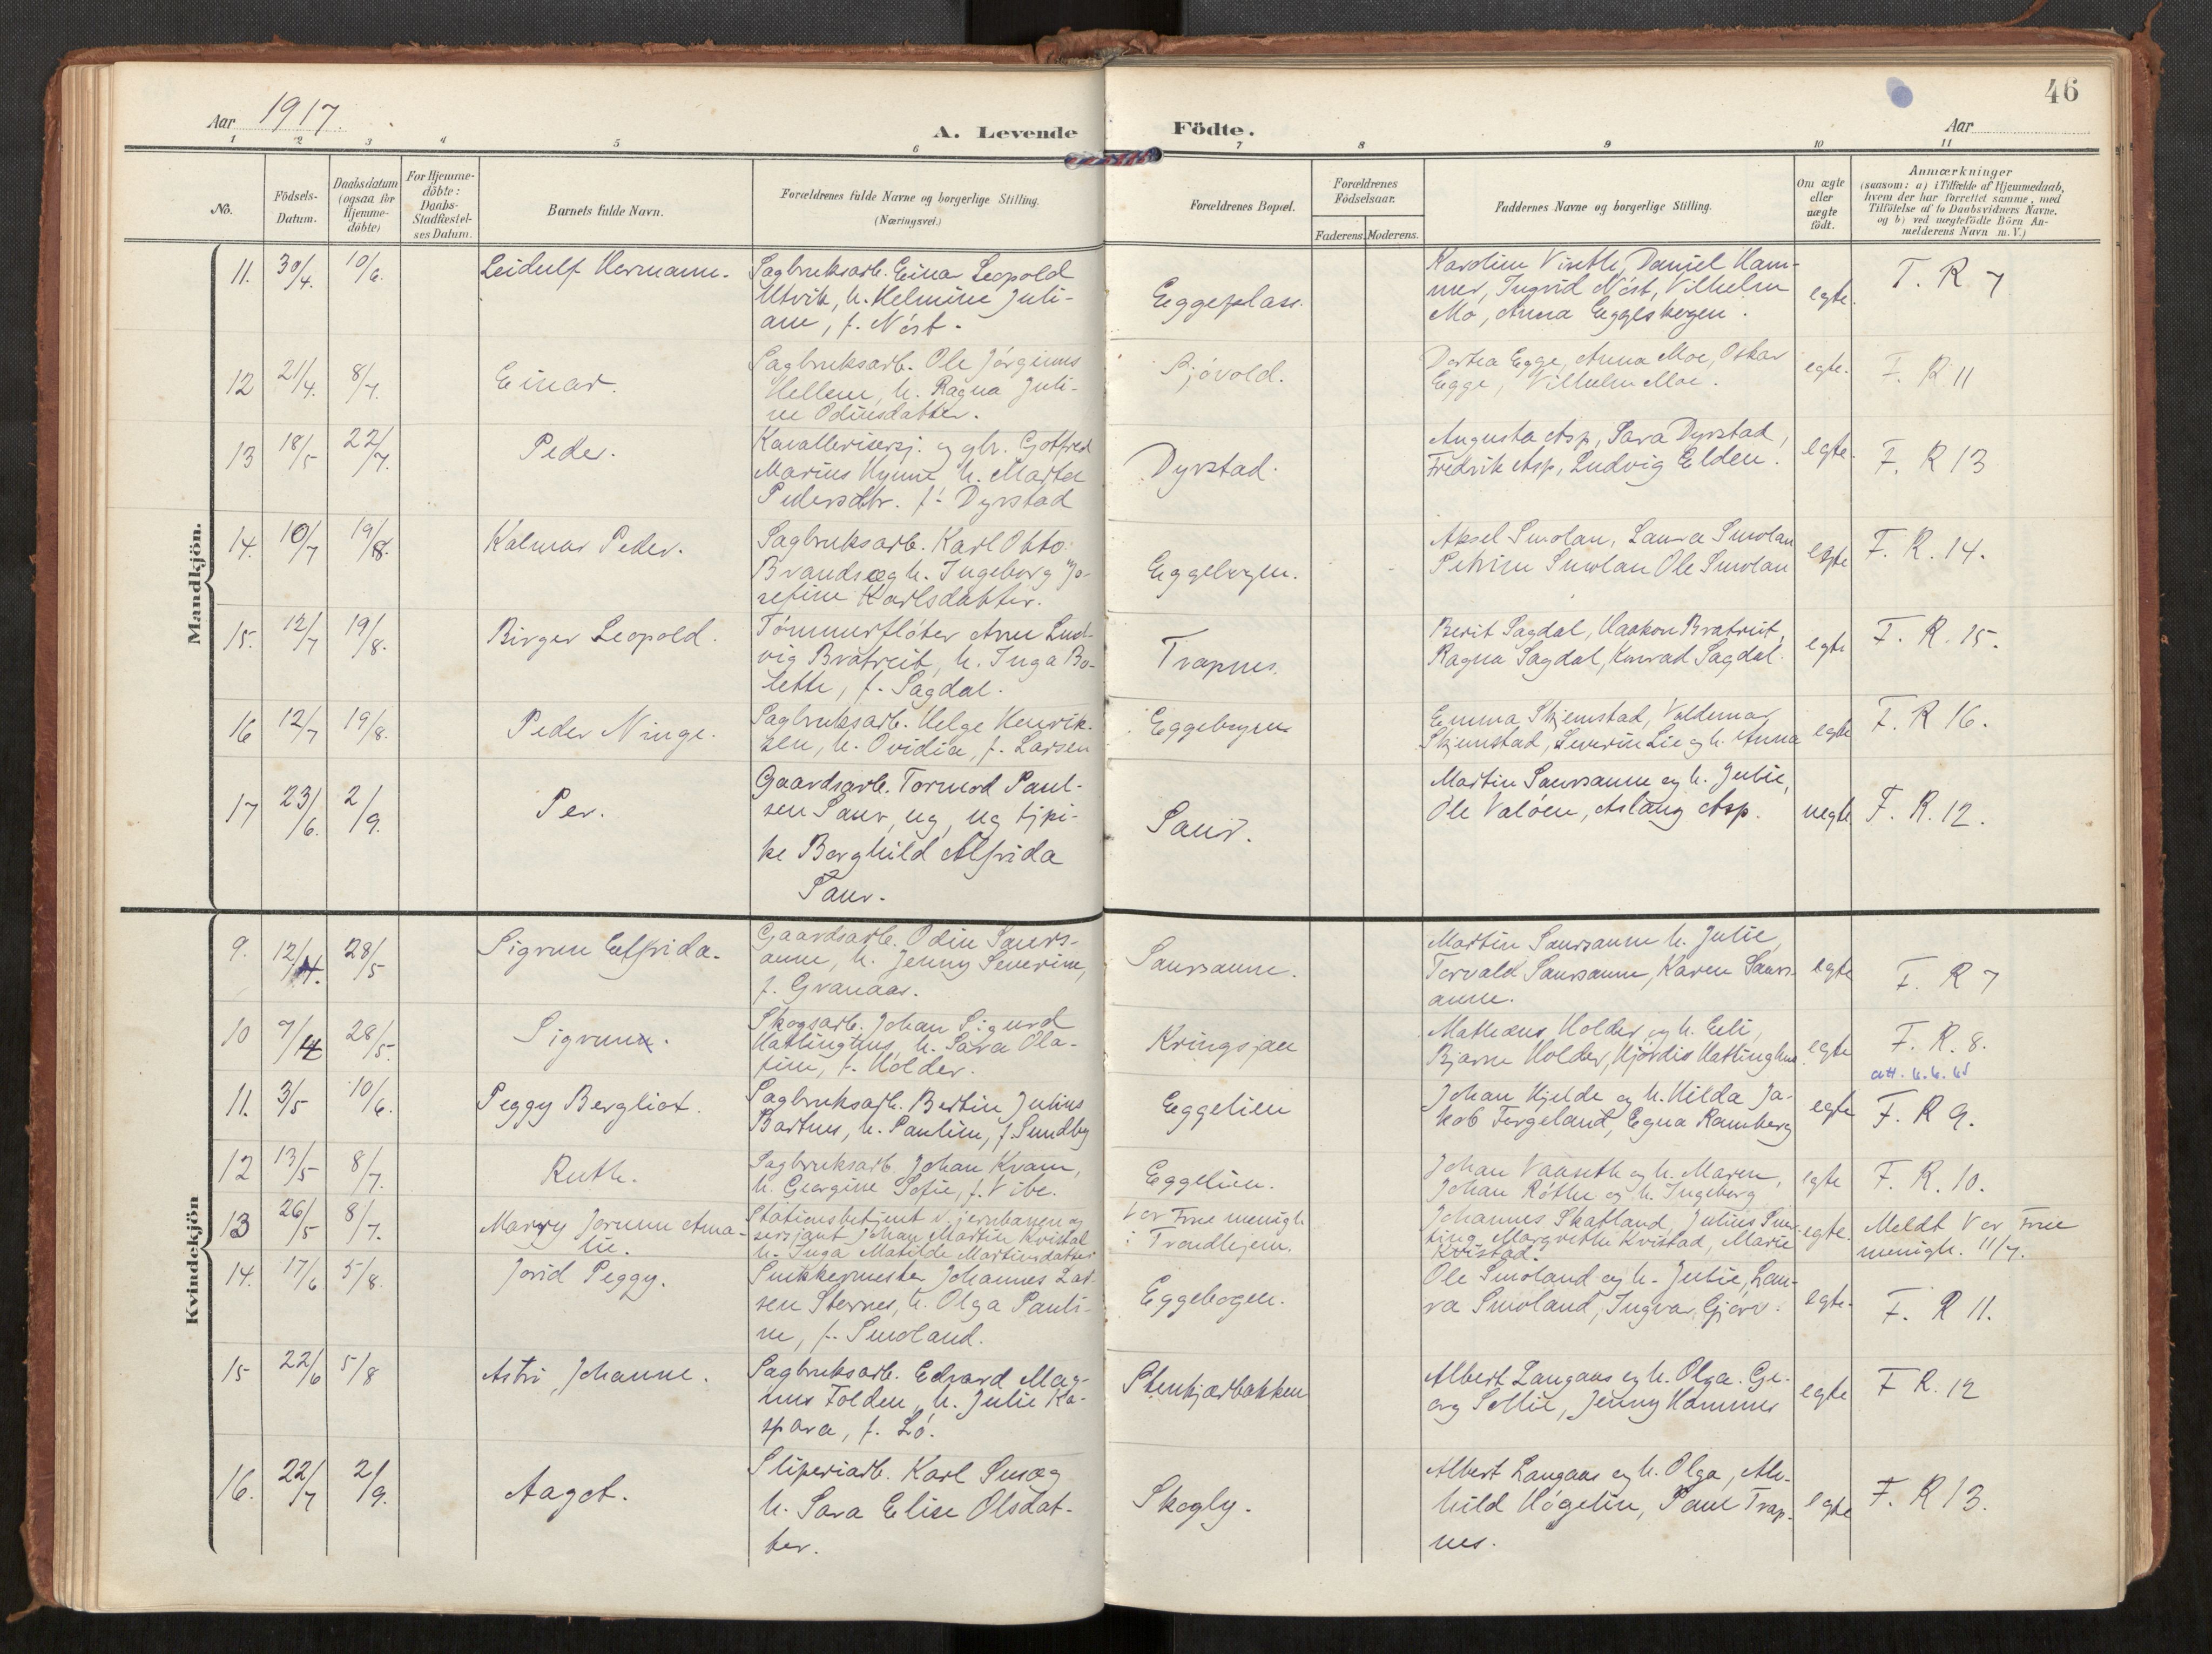 46
Aar 1917.
A. Levende Födte.
Aar
1 2 3 4 5 6 7 8 9 10 11
No.
Födsels-Datum.
Daabsdatum (ogsaa för Hjemme-döbte)
For Hjemme-döbte: Daabs-Stadfæstel-ses Datum.
Barnets fulde Navn.
Forældrenes fulde Navne og borgerlige Stilling.
(Næringsvei.)
Forældrenes Bopæl.
Forældrenes Födselsaar.
Faderens. Moderens.
Faddernes Navne og borgerlige Stilling.
Om ægte eller uægte födt.
Anmærkninger
(saasom: a) i Tilfælde af Hjemmedaab,
hvem der har forrettet samme, med
Tilföielse af to Daabsvidners Navne.
og b) ved uægtefödte Börn An-
melderens Navn m. V.)
Mandkjön.
11. 30/4. 10/6. Leidulf Hermann. Sagbruksarb. Einar Leopold
Utvik, h. Helmine Juli-
ane, f. Nöst.
Eggeplass.
Karoline Viseth, Daniel Ham-
mer, Ingrid Nöst, Vilhelm
Mo, Anna Eggeskogen.
egte. F. R 7
12 21/4. 8/7. Einar. Sagbruksarb. Ole Jörginus
Hellem, h. Ragna Juli-
ne Odinsdatter.
Sjövold.
Dortea Egge, Anna Moe, Oskar
Egge, Vilhelm Moe.
egte. F. R 11
13 18/5 22/7. Peder. Kavallerisersj. og gbr. Gotfred
Marius Hynne h. Marta
Pedersdtr. f. Dyrstad
Dyrstad.
Augusta Asp, Sara Dyrstad,
Fredrik Asp, Ludvig Elden.
egte. F. R 13
14. 10/7 19/8. Kalmar Peder. Sagbruksarb. Karl Otto
Brandsæg h. Ingeborg Jo-
sefine Karlsdatter.
Eggebogen.
Aksel Smolan, Laura Smolan
Petrine Smolan Ole Smolan
egte F. R. 14.
15. 12/7 19/8. Birger Leopold. Tömmerflöter Arne Lud-
vig Bratreit, h. Inga Bo-
lette, f. Sagdal.
Trapnes.
Berit Sagdal, Haakon Bratreit,
Ragna Sagdal, Konrad Sagdal.
egte F. R. 15.
16 12/7 19/8. Peder Ninge. Sagbruksarb. Helge Henrik-
sen, h. Ovidia, f. Larsen
Eggebogen
Emma Skjemstad, Valdemar
Skjemstad, Severin Lie og h. Anna
egte F. R 16.
17 23/6. 2/9. Per. Gaardsarb. Tormod Paul-
sen Saur, ug, ug tjpi-
ke Borghild Alfrida
Saur.
Saur.
Martin Saursaune og h. Julie,
Ole Valöen, Aslaug Asp.
uegte F. R. 12.
Kvindekjön
9. 12/4. 28/5 Sigrun Elfrida. Gaardsarb. Odin Saurs-
aune, h. Jenny Severine,
f. Granaas.
Saursaune.
Martin Saursaune h. Julie,
Torvald Saursaune, Karen Saurs-
aune.
egte F. R 7
10 7/4 28/5. Sigrunn. Skogsarb. Johan Sigurd
Hatlinghus, h. Sara Ola-
fine, f. Holder.
Kringsjaa
Matheus Holder og h. Eli,
Bjarne Holder, Hjördis Hatlinghus
egte F. R. 8.
att. 6.6.65
11. 3/5 10/6. Peggy Bergliot. Sagbruksarb. Bertin Julius
Bartnes, h. Pauline, f. Sundby
Eggelien
Johan Hjelde og h. Hilda Ja-
kob Fergeland, Egna Ramberg
egte F. R 9.
12 13/5 8/7. Ruth. Sagbruksarb. Johan Kvam,
h. Georgine Sofie, f. Vibe.
Eggelien.
Johan Vaaseth og h. Maren,
Johan Röthe og h. Ingeborg
egte F. R. 10.
13 26/5 8/7. Marry Jorunn Ama-
lie.
Stationsbetjent v. jernbanen og
sersjant Johan Martin Kvistad
h. Inga Matilde Martinsdatter
Vor Frue menigh.
i Trondhjem.
Johannes Skatland, Julius
Margrethe Kvistad, Marie
Kvistad.
egte. Meldt Vor Frue
menigh. 11/7.
14. 17/6 5/8. Jorid Peggy. Snikkermester Johannes Lar-
sen Sternes, h. Olga Pauli-
ne, f. Smoland.
Eggebogen.
Ole Smoland og h. Julie, Lau-
ra Smoland, Ingvar Gjörv.
egte. F. R 11.
15 22/6 5/8 Astri Johanne. Sagbruksarb. Edvard Mag-
nus Folden, h. Julie Ka-
spara, f. Lö.
Stenkjærbakken
Albert Langaas og h. Olga. Ge-
org Sellie, Jenny Hammer
egte F R. 12
16. 22/7 2/9. Aagot. Sliperiarb. Karl Smæg
h. Sara Elise Olsdat-
ter.
Skogly.
Albert Langaas og h. Olga, Alv-
hild Högelin, Paul Trap-
nes.
egte F. R 13.